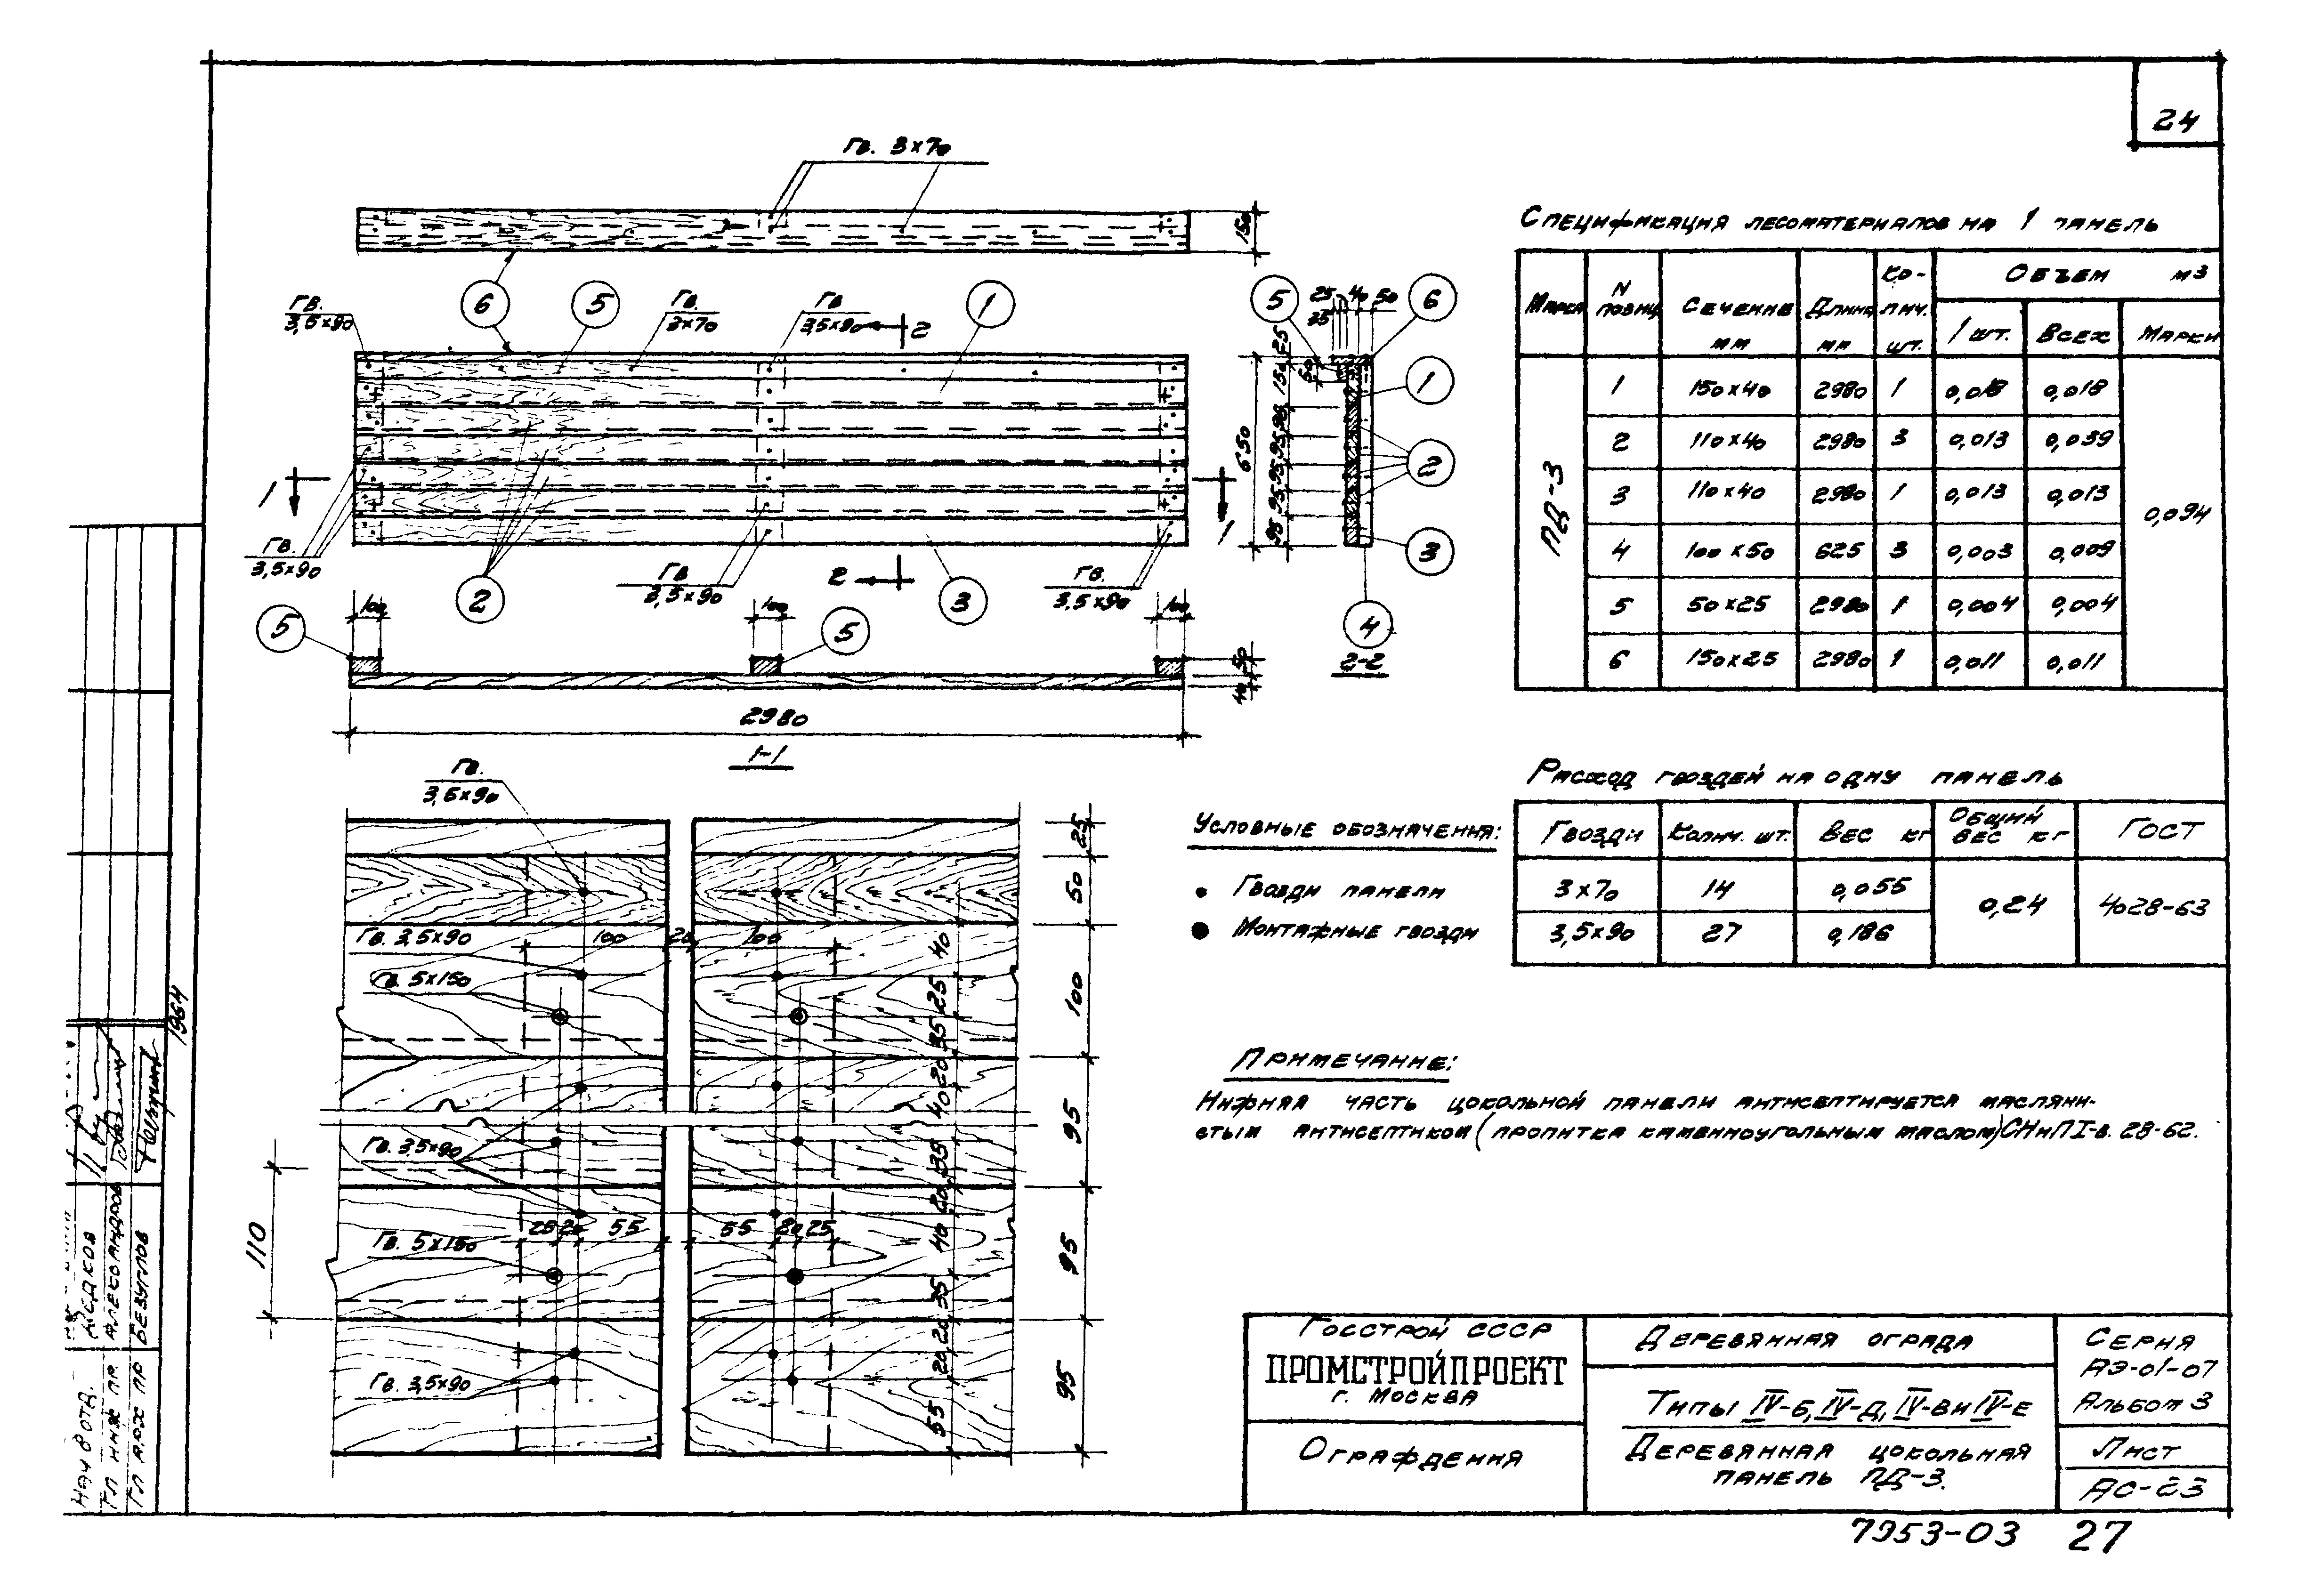 24
Гв. 3×70
150
6
5
1
Гв.
3,5×90
Гв.
3×70
Гв
3,5×90
2
5
25 40 50
35
6
25
150
50
95 95 95 95 95
650
1
2
3
4
2-2
1
1
Гв.
3,5×90
2
Гв
3,5×90
2
3
Гв.
3,5×90
5
100
100
5
100
50
40
2980
1-1
Гв.
3,5×90
25
50
100
95
95
95
Гв. 3,5×90
100 20 100
Гв. 5×150
40
25
35
20
40
Гв. 3,5×90
35
20
40
110
25 20 55 55 20 25
Гв. 5×150
35
20
20
55
Гв. 3,5×90
Спецификация лесоматериалов на 1 панель
Марка N позиц. Сечение мм Длина мм Ко-лич. шт. Объем м3
1 шт. Всех Марки
ПД-3
1 150×40 2980 1 0,018 0,018
2 110×40 2980 3 0,013 0,039
3 110×40 2980 1 0,013 0,013
0,094
4 100×50 625 3 0,003 0,009
5 50×25 2980 1 0,004 0,004
6 150×25 2980 1 0,011 0,011
Расход гвоздей на одну панель
Гвозди Колич. шт. Вес кг Общий вес кг ГОСТ
3×70 14 0,055 0,24 4028-63
3,5×90 27 0,186
Условные обозначения:
Гвозди панели
Монтажные гвозди
Примечание:
Нижняя часть цокольной панели антисептируется масляни-
стым антисептиком (пропитка каменноугольным маслом) СНиП I-в. 28-62.
Госстрой СССР
ПРОМСТРОЙПРОЕКТ
г. Москва
Ограждения
Деревянная ограда
Типы IV-б, IV-д, IV-в и IV-е
Деревянная цокольная
панель ПД-3.
Серия
АЭ-01-07
Альбом 3
Лист
АС-23
7953-03 27
1964
Нач 8 отд.
Гл инж пр. Александров
Гл арх пр Безуглов